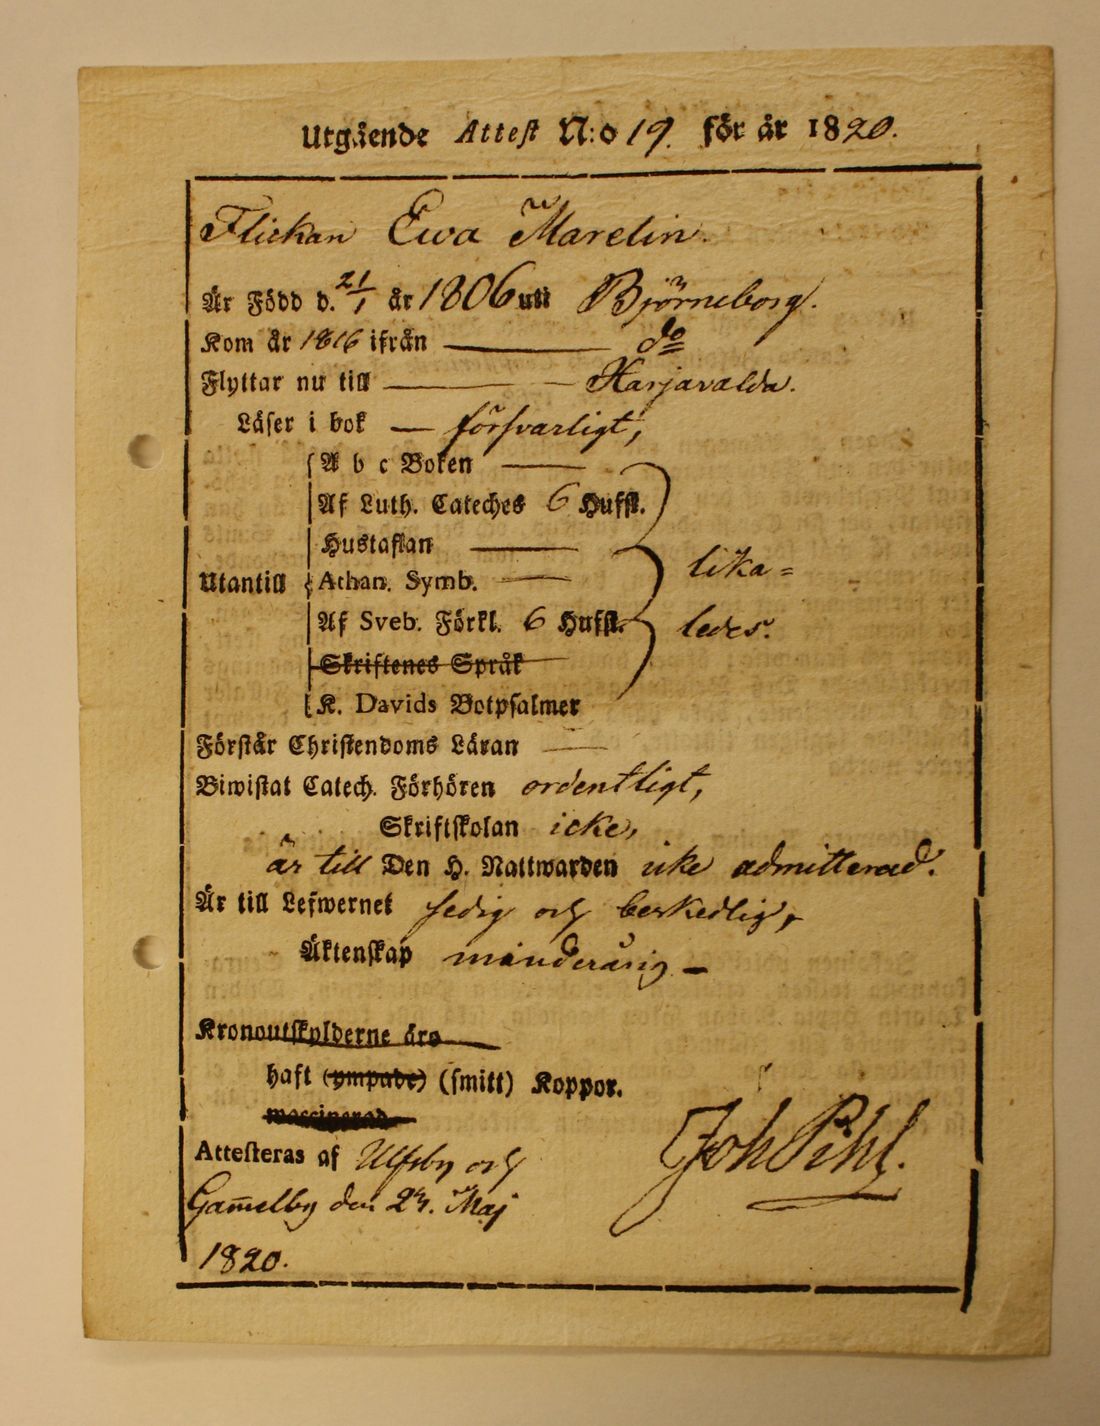 Utgående Attest N:o 19. för år 1820.
Flickan Ewa Marelin.
Är Född d. 21/1 år 1806 uti Björneborg.
Kom år 1816 ifrån — do
Flyttar nu till — Harjavalda.
Läser i bok — försvarligt,
A b c Boken —
Af Luth. Cateches 6 Hufst.
Hustaflan —
Utantill Athan. Symb. — lika=
Af Sveb. Förkl. 6 Hufst. ledes.
Skriftenes Språk
K. Davids Botpsalmer
Förstår Christendoms Läran —
Biwistat Catech. Förhören ordentligt,
Skriftskolan icke,
är till Den H. Nattwarden icke admitterad.
Är till Lefwernet sedig och beskedlig,
Äktenskap minderårig —
Kronoutskylderne äro
haft (ympade) (smitt) Koppor.
waccinerad
Attesteras af Ulfsby och
Gam̅elby den Maj
1820.
Joh Pihl.